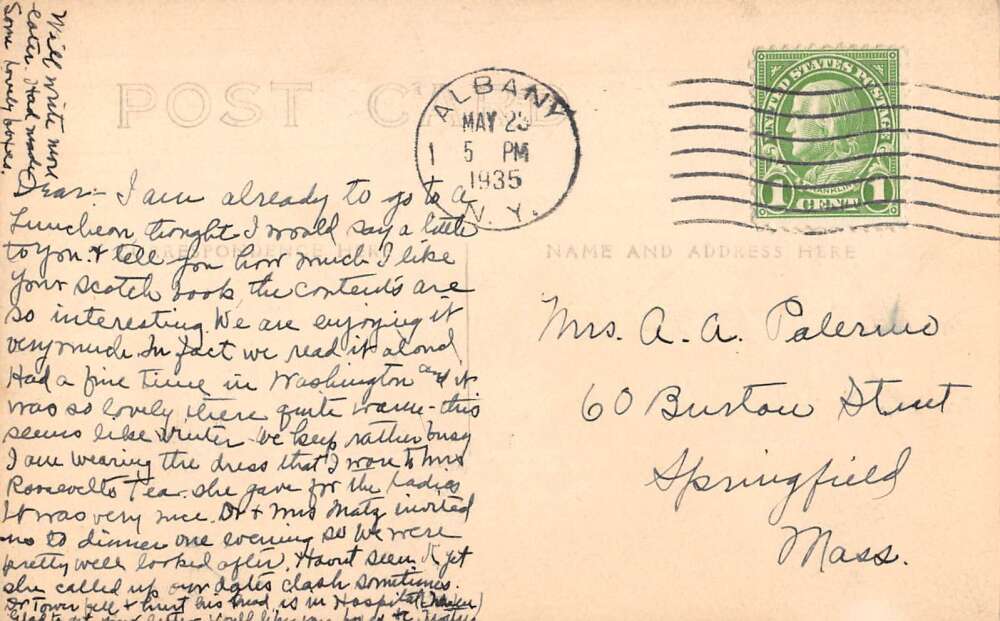 Will write more
later. Had made
Some lovely boxes.
POST CARD
ALBANY
MAY 23
1 5 PM
1935
N. Y.
UNITED STATES POSTAGE
FRANKLIN
1 1
CENT
CORRESPONDENCE HERE
NAME AND ADDRESS HERE
Dear:- I am already to go to a
Luncheon, thought I would say a little
to you & tell you how much I like
your Scotch book, the contents are
so interesting. We are enjoying it
very much. In fact we read it aloud
Had a fine time in Washington and it
was so lovely there quite warm - this
seems like Winter - We keep rather busy
I am wearing the dress that I wore to Mrs
Roosevelts Tea. she gave for the ladies
It was very nice. Dr & Mrs Matz invited
us to dinner one evening so we were
pretty well looked after. Havent seen yet
she called up our dates clash sometimes.
Dr Tower fell & hurt his head, is in Hospital
Mrs. A. A. Palermo
60 Burton Street
Springfield
Mass.